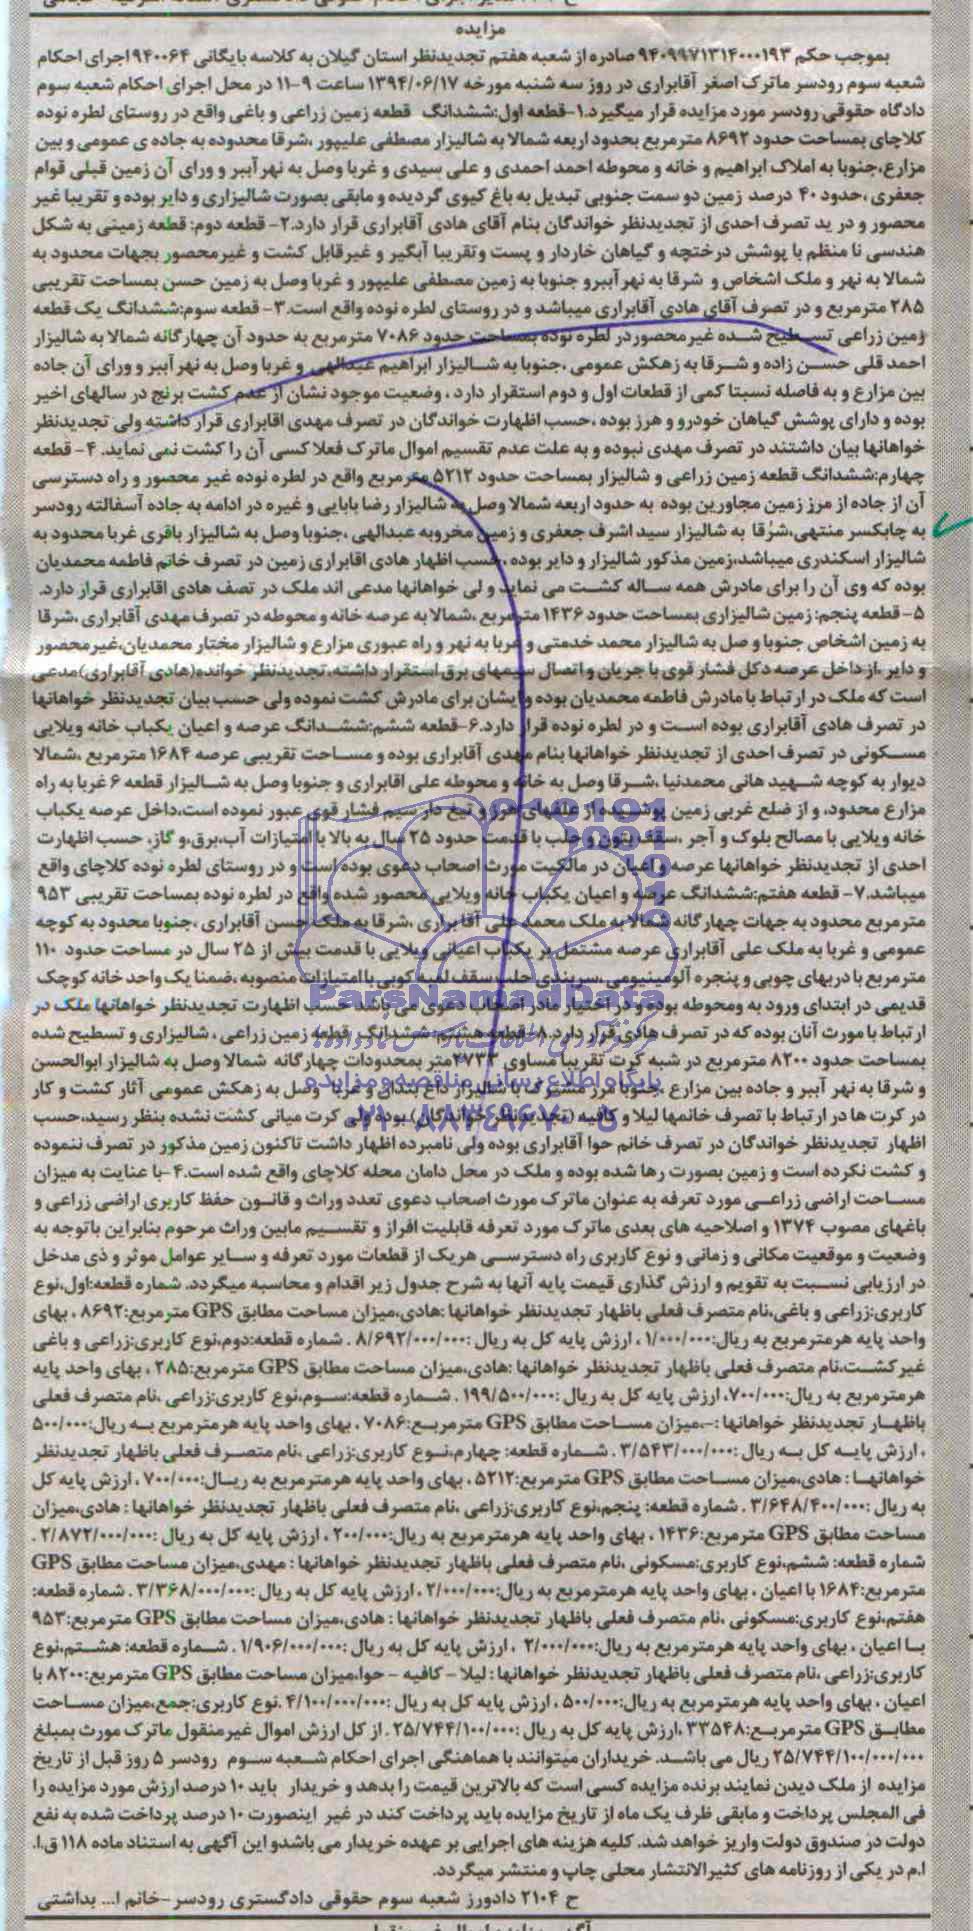 مزایده
بموجب حکم ۹۴۰۹۹۷۱۳۱۴۰۰۰۱۹۳ صادره از شعبه هفتم تجدیدنظر استان گیلان به کلاسه بایگانی ۹۴۰۰۶۴ اجرای احکام
شعبه سوم رودسر ماترک اصغر آقابراری در روز سه شنبه مورخه ۱۳۹۴/۰۶/۱۷ ساعت ۹-۱۱ در محل اجرای احکام شعبه سوم
دادگاه حقوقی رودسر مورد مزایده قرار میگیرد.۱-قطعه اول:ششدانگ قطعه زمین زراعی و باغی واقع در روستای لطره نوده
کلاچای بمساحت حدود ۸۶۹۲ مترمربع بحدود اربعه شمالا به شالیزار مصطفی علیپور ،شرقا محدوده به جاده ی عمومی و بین
مزارع،جنوبا به املاک ابراهیم و خانه و محوطه احمد احمدی و علی سیدی و غربا وصل به نهر آببر و ورای آن زمین قبلی قوام
جعفری ،حدود ۴۰ درصد زمین دو سمت جنوبی تبدیل به باغ کیوی گردیده و مابقی بصورت شالیزاری و دایر بوده و تقریبا غیر
محصور و در ید تصرف احدی از تجدیدنظر خواندگان بنام آقای هادی آقابراری قرار دارد.۲- قطعه دوم: قطعه زمینی به شکل
هندسی نا منظم با پوشش درختچه و گیاهان خاردار و پست وتقریبا آبگیر و غیرقابل کشت و غیرمحصور بجهات محدود به
شمالا به نهر و ملک اشخاص و شرقا به نهر آببرو جنوبا به زمین مصطفی علیپور و غربا وصل به زمین حسن بمساحت تقریبی
۲۸۵ مترمربع و در تصرف آقای هادی آقابراری میباشد و در روستای لطره نوده واقع است.۳- قطعه سوم:ششدانگ یک قطعه
زمین زراعی تسطیح شده غیرمحصوردر لطره نوده بمساحت حدود ۷۰۸۶ مترمربع به حدود آن چهارگانه شمالا به شالیزار
احمد قلی حسن زاده و شرقا به زهکش عمومی ،جنوبا به شالیزار ابراهیم عبدالهی و غربا وصل به نهر آببر و ورای آن جاده
بین مزارع و به فاصله نسبتا کمی از قطعات اول و دوم استقرار دارد ، وضعیت موجود نشان از عدم کشت برنج در سالهای اخیر
بوده و دارای پوشش گیاهان خودرو و هرز بوده ،حسب اظهارت خواندگان در تصرف مهدی اقابراری قرار داشته ولی تجدیدنظر
خواهانها بیان داشتند در تصرف مهدی نبوده و به علت عدم تقسیم اموال ماترک فعلا کسی آن را کشت نمی نماید. ۴- قطعه
چهارم:ششدانگ قطعه زمین زراعی و شالیزار بمساحت حدود ۵۲۱۲ مترمربع واقع در لطره نوده غیر محصور و راه دسترسی
آن از جاده از مرز زمین مجاورین بوده به حدود اربعه شمالا وصل به شالیزار رضا بابایی و غیره در ادامه به جاده آسفالته رودسر
به چابکسر منتهی،شرقا به شالیزار سید اشرف جعفری و زمین مخروبه عبدالهی ،جنوبا وصل به شالیزار باقری غربا محدود به
شالیزار اسکندری میباشد،زمین مذکور شالیزار و دایر بوده ،حسب اظهار هادی اقابراری زمین در تصرف خانم فاطمه محمدیان
بوده که وی آن را برای مادرش همه ساله کشت می نماید و لی خواهانها مدعی اند ملک در تصف هادی اقابراری قرار دارد.
۵- قطعه پنجم: زمین شالیزاری بمساحت حدود ۱۴۳۶ مترمربع ،شمالا به عرصه خانه و محوطه در تصرف مهدی آقابراری ،شرقا
به زمین اشخاص جنوبا و صل به شالیزار محمد خدمتی و غربا به نهر و راه عبوری مزارع و شالیزار مختار محمدیان،غیرمحصور
و دایر ،از داخل عرصه دکل فشار قوی با جریان و اتصال سیمهای برق استقرار داشته، تجدیدنظر خوانده(هادی آقابراری)مدعی
است که ملک در ارتباط با مادرش فاطمه محمدیان بوده و ایشان برای مادرش کشت نموده ولی حسب بیان تجدیدنظر خواهانها
در تصرف هادی آقابراری بوده است و در لطره نوده قرار دارد.۶-قطعه ششم:ششدانگ عرصه و اعیان یکباب خانه ویلایی
مسکونی در تصرف احدی از تجدیدنظر خواهانها بنام مهدی آقابراری بوده و مساحت تقریبی عرصه ۱۶۸۴ مترمربع ،شمالا
دیوار به کوچه شهید هانی محمدنیا ،شرقا وصل به خانه و محوطه علی اقابراری و جنوبا وصل به شالیزار قطعه ۶ غربا به راه
مزارع محدود، و از ضلع غربی زمین پوشیده از علفهای هرز و تیغ دار سیم فشار قوی عبور نموده است،داخل عرصه یکباب
خانه ویلایی با مصالح بلوک و آجر ،سقف بتون و حلب با قدمت حدود ۲۵ سال به بالا با امتیازات آب،برق،و گاز، حسب اظهارت
احدی از تجدیدنظر خواهانها عرصه و اعیان در مالکیت مورث اصحاب دعوی بوده است و در روستای لطره نوده کلاچای واقع
میباشد.۷- قطعه هفتم:ششدانگ عرصه و اعیان یکباب خانه ویلایی محصور شده واقع در لطره نوده بمساحت تقریبی ۹۵۳
مترمربع محدود به جهات چهارگانه شمالا به ملک محمد علی آقابراری ،شرقا به ملک حسن آقابراری ،جنوبا محدود به کوچه
عمومی و غربا به ملک علی آقابراری عرصه مشتمل بر یکباب اعیانی ویلایی با قدمت بیش از ۲۵ سال در مساحت حدود ۱۱۰
مترمربع با دربهای چوبی و پنجره آلومینیومی،سربندی حلب سقف لمبه کوبی با امتیازات منصوبه ،ضمنا یک واحد خانه کوچک
قدیمی در ابتدای ورود به ومحوطه بوده و در اختیار مادر اصحاب دعوی می باشد حسب اظهارت تجدیدنظر خواهانها ملک در
ارتباط با مورث آنان بوده که در تصرف هادی قرار دارد.۸-قطعه هشتم: ششدانگ قطعه زمین زراعی ، شالیزاری و تسطیح شده
بمساحت حدود ۸۲۰۰ مترمربع در شبه کرت تقریبا مساوی ۲۷۳۳متر بمحدودات چهارگانه شمالا وصل به شالیزار ابوالحسن
و شرقا به نهر آببر و جاده بین مزارع ،جنوبا مرز مشترک با شالیزار داغ بندان و غربا وصل به زهکش عمومی آثار کشت و کار
در کرت ها در ارتباط با تصرف خانمها لیلا و کافیه (تجدیدنظر خواندگان) بوده ولی کرت میانی کشت نشده بنظر رسید،حسب
اظهار تجدیدنظر خواندگان در تصرف خانم حوا آقابراری بوده ولی نامبرده اظهار داشت تاکنون زمین مذکور در تصرف ننموده
و کشت نکرده است و زمین بصورت رها شده بوده و ملک در محل دامان محله کلاچای واقع شده است.۴-با عنایت به میزان
مساحت اراضی زراعی مورد تعرفه به عنوان ماترک مورث اصحاب دعوی تعدد وراث و قانون حفظ کاربری اراضی زراعی و
باغهای مصوب ۱۳۷۴ و اصلاحیه های بعدی ماترک مورد تعرفه قابلیت افراز و تقسیم مابین وراث مرحوم بنابراین باتوجه به
وضعیت و موقعیت مکانی و زمانی و نوع کاربری راه دسترسی هریک از قطعات مورد تعرفه و سایر عوامل موثر و ذی مدخل
در ارزیابی نسبت به تقویم و ارزش گذاری قیمت پایه آنها به شرح جدول زیر اقدام و محاسبه میگردد. شماره قطعه:اول،نوع
کاربری:زراعی و باغی،نام متصرف فعلی باظهار تجدیدنظر خواهانها :هادی،میزان مساحت مطابق GPS مترمربع:۸۶۹۲ ، بهای
واحد پایه هرمترمربع به ریال:۱/۰۰۰/۰۰۰ ، ارزش پایه کل به ریال :۸/۶۹۲/۰۰۰/۰۰۰ . شماره قطعه:دوم،نوع کاربری:زراعی و باغی
غیرکشت،نام متصرف فعلی باظهار تجدیدنظر خواهانها :هادی،میزان مساحت مطابق GPS مترمربع:۲۸۵ ، بهای واحد پایه
هرمترمربع به ریال:۷۰۰/۰۰۰، ارزش پایه کل به ریال :۱۹۹/۵۰۰/۰۰۰ . شماره قطعه:سوم،نوع کاربری:زراعی ،نام متصرف فعلی
باظهار تجدیدنظر خواهانها :-،میزان مساحت مطابق GPS مترمربع:۷۰۸۶ ، بهای واحد پایه هرمترمربع به ریال:۵۰۰/۰۰۰
، ارزش پایه کل به ریال :۳/۵۴۳/۰۰۰/۰۰۰ . شماره قطعه: چهارم،نوع کاربری:زراعی ،نام متصرف فعلی باظهار تجدیدنظر
خواهانها : هادی،میزان مساحت مطابق GPS مترمربع:۵۲۱۲ ، بهای واحد پایه هرمترمربع به ریال:۷۰۰/۰۰۰ ، ارزش پایه کل
به ریال :۳/۶۴۸/۴۰۰/۰۰۰ . شماره قطعه: پنجم،نوع کاربری:زراعی ،نام متصرف فعلی باظهار تجدیدنظر خواهانها : هادی،میزان
مساحت مطابق GPS مترمربع:۱۴۳۶ ، بهای واحد پایه هرمترمربع به ریال:۲۰۰/۰۰۰ ، ارزش پایه کل به ریال :۲/۸۷۲/۰۰۰/۰۰۰ .
شماره قطعه: ششم،نوع کاربری:مسکونی ،نام متصرف فعلی باظهار تجدیدنظر خواهانها : مهدی،میزان مساحت مطابق GPS
مترمربع:۱۶۸۴ با اعیان ، بهای واحد پایه هرمترمربع به ریال:۲/۰۰۰/۰۰۰ ، ارزش پایه کل به ریال :۳/۳۶۸/۰۰۰/۰۰۰ . شماره قطعه:
هفتم،نوع کاربری:مسکونی ،نام متصرف فعلی باظهار تجدیدنظر خواهانها : هادی،میزان مساحت مطابق GPS مترمربع:۹۵۳
با اعیان ، بهای واحد پایه هرمترمربع به ریال:۲/۰۰۰/۰۰۰ ، ارزش پایه کل به ریال :۱/۹۰۶/۰۰۰/۰۰۰ . شماره قطعه: هشتم،نوع
کاربری:زراعی ،نام متصرف فعلی باظهار تجدیدنظر خواهانها : لیلا - کافیه - حوا،میزان مساحت مطابق GPS مترمربع:۸۲۰۰ با
اعیان ، بهای واحد پایه هرمترمربع به ریال:۵۰۰/۰۰۰ ، ارزش پایه کل به ریال :۴/۱۰۰/۰۰۰/۰۰۰ .نوع کاربری:جمع،میزان مساحت
مطابق GPS مترمربع:۳۳۵۴۸ ،ارزش پایه کل به ریال :۲۵/۷۴۴/۱۰۰/۰۰۰ . از کل ارزش اموال غیرمنقول ماترک مورث بمبلغ
۲۵/۷۴۴/۱۰۰/۰۰۰/۰۰۰ ریال می باشد. خریداران میتوانند با هماهنگی اجرای احکام شعبه سوم رودسر ۵ روز قبل از تاریخ
مزایده از ملک دیدن نمایند برنده مزایده کسی است که بالاترین قیمت را بدهد و خریدار باید ۱۰ درصد ارزش مورد مزایده را
فی المجلس پرداخت و مابقی ظرف یک ماه از تاریخ مزایده باید پرداخت کند در غیر اینصورت ۱۰ درصد پرداخت شده به نفع
دولت در صندوق دولت واریز خواهد شد. کلیه هزینه های اجرایی بر عهده خریدار می باشدو این آگهی به استناد ماده ۱۱۸ ق.ا.
ا.م در یکی از روزنامه های کثیرالانتشار محلی چاپ و منتشر میگردد.
ح ۲۱۰۴ دادورز شعبه سوم حقوقی دادگستری رودسر-خانم ا... بداشتی
ParsNamadData
پایگاه اطلاع رسانی مناقصه و مزایده
۰۲۱-۸۸۳۴۹۶۷۰-۵